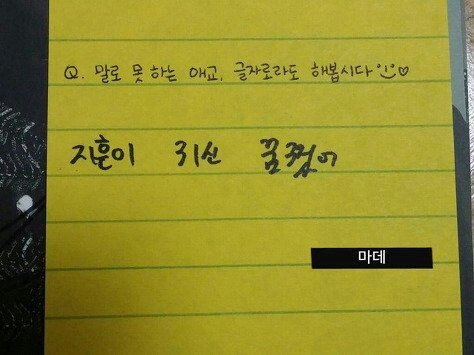 Q. 말로 못 하는 애교, 글자로라도 해봅시다 :) ♡
지훈이 귀신 꿈꿨어
마데